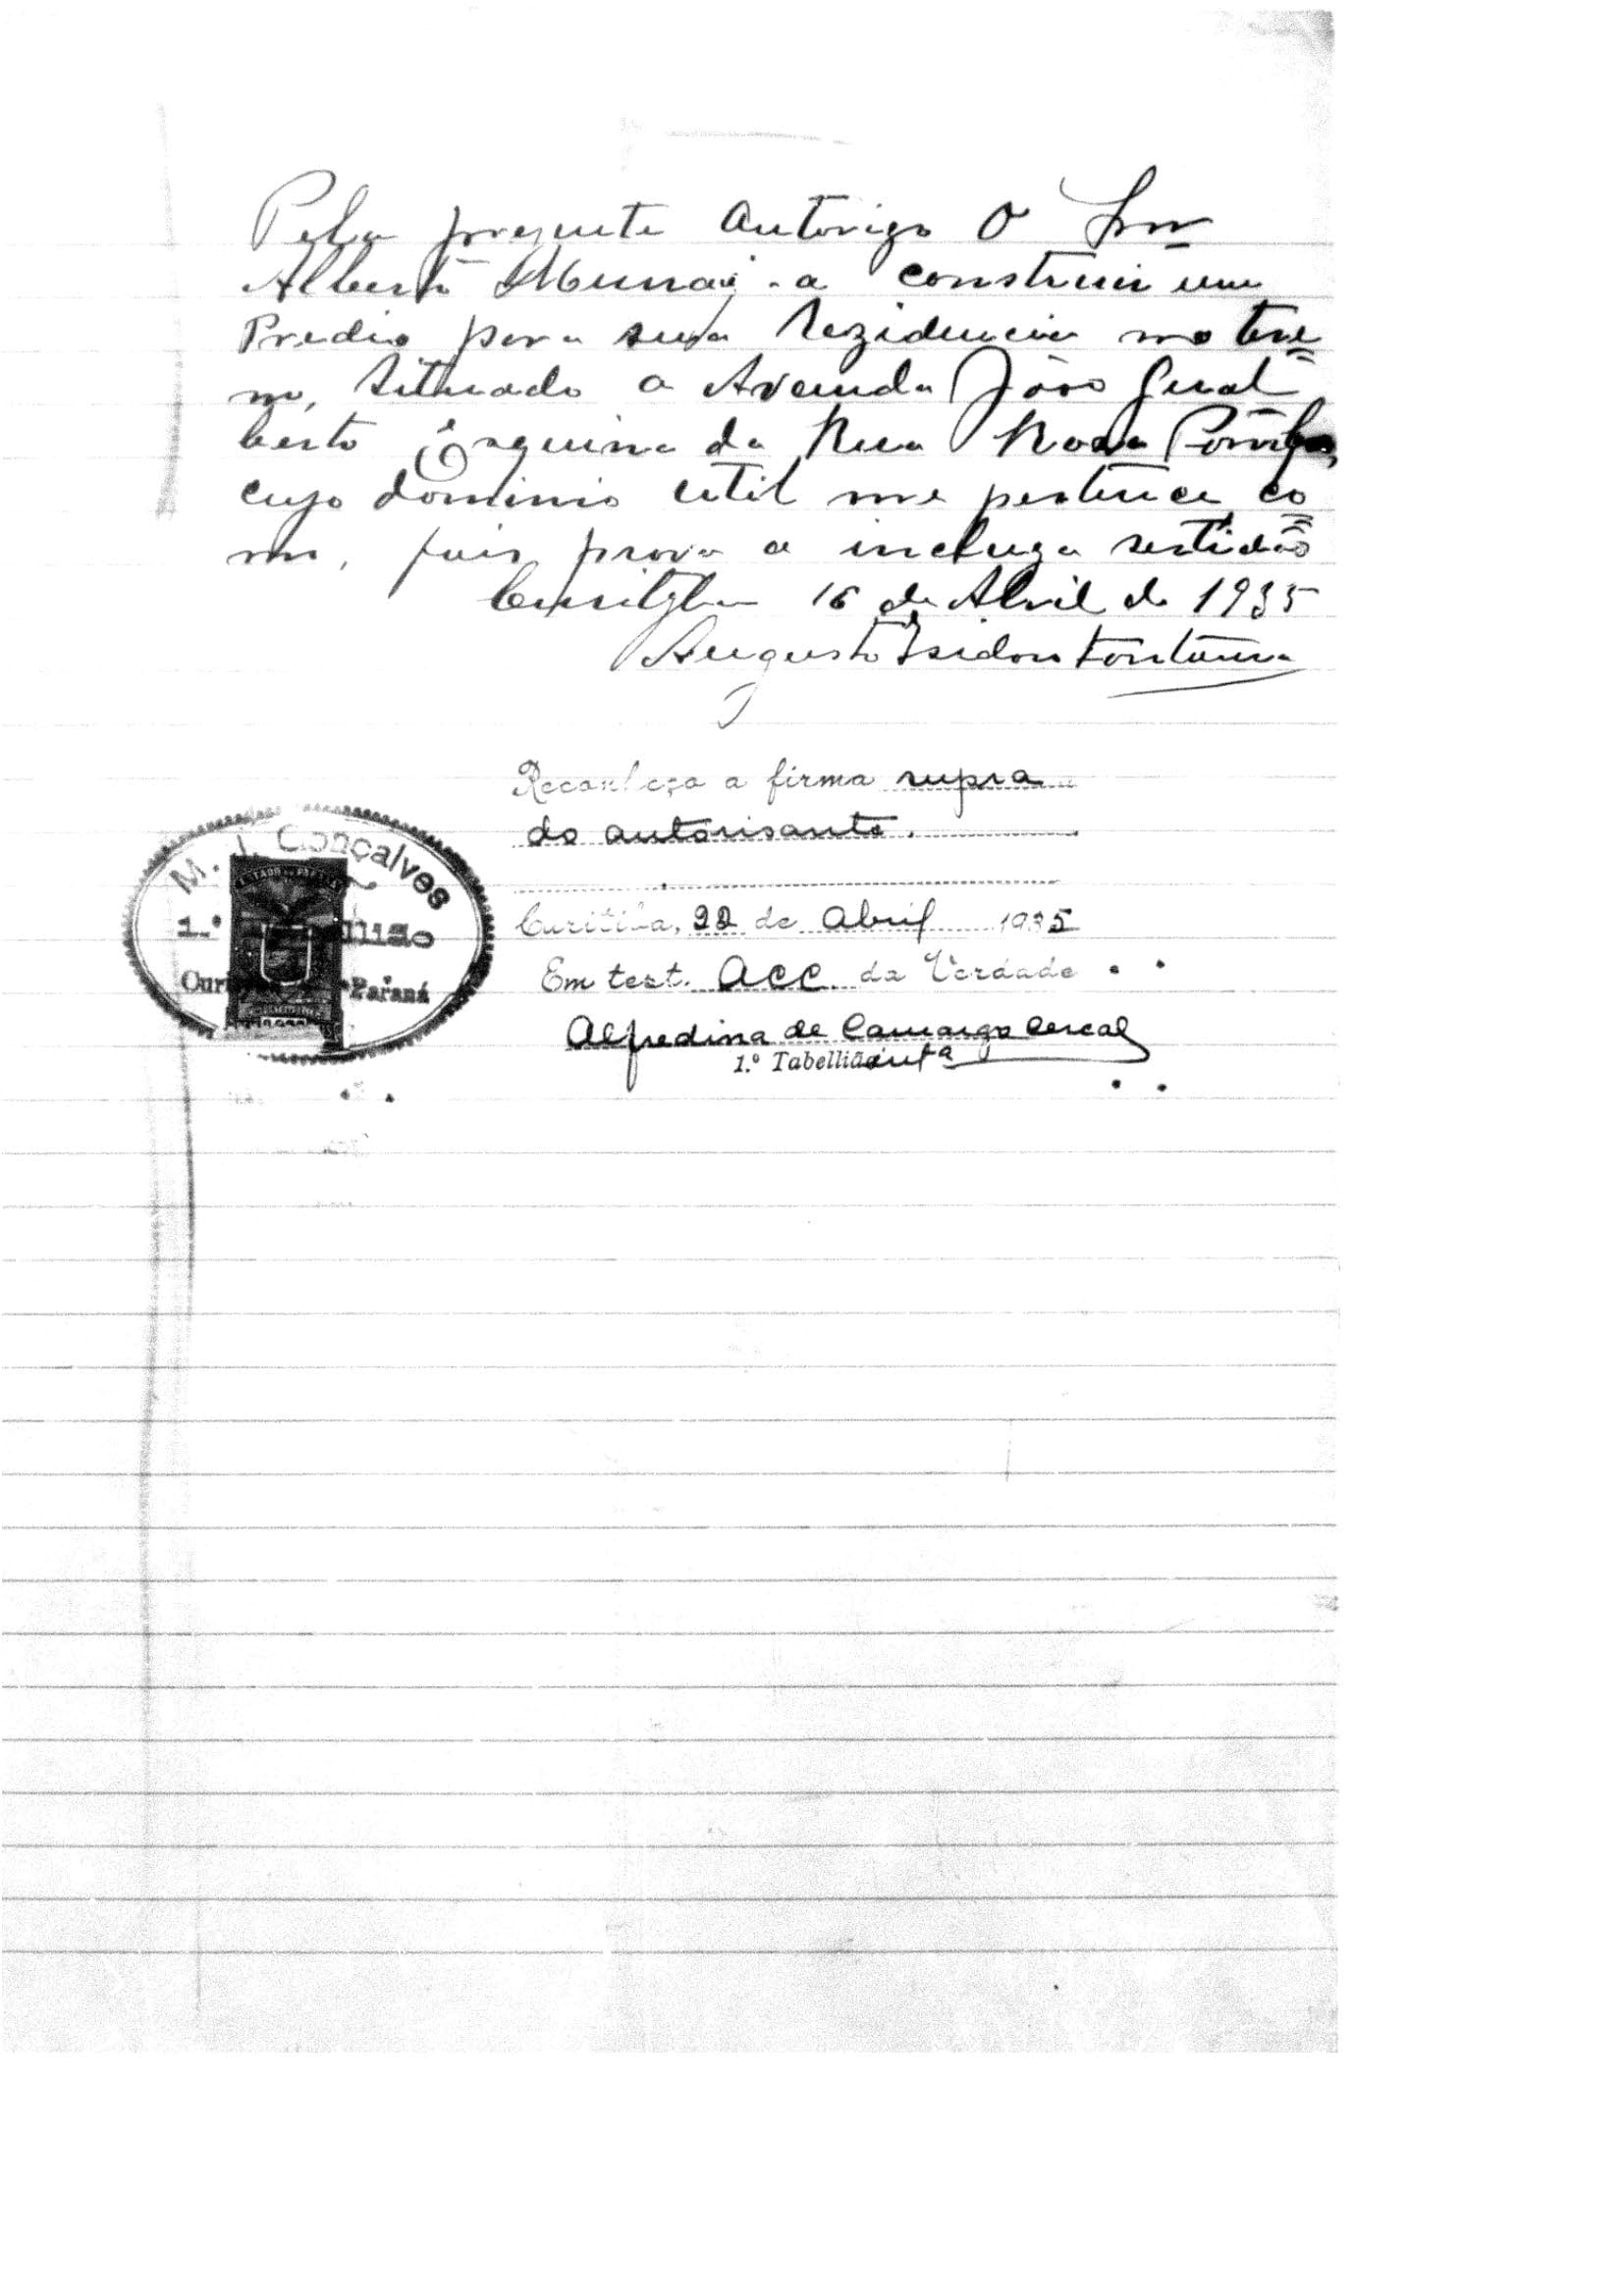 Pela prezente autorizo o Snr
Alberto Munai a construir um
Predio para sua rezidencia no tere
no, situado a Avenida João Gual
berto Esquina da Rua Rosa
cujo dominio util me pertence co
mo, faiz prova a incluza sertidão
Curityba 16 de Abril de 1935
Augusto Isidoro Fontana
Reconheço a firma supra
do autorisante.
Curitiba, 22 de Abril 1935
Em test. ACC da Verdade
Alfredina de Camargo Cercal
1.º Tabelliã
M. J. Gonçalves
1.º Tabellião
Curityba Paraná
ESTADO DO PARANÁ